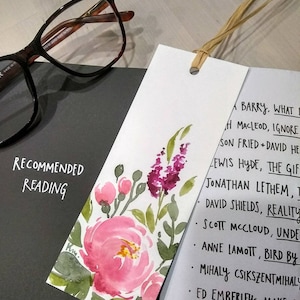 RECOMMENDED
READING
A BARRY, WHAT
MACLEOD, IGNORE
SON FRIED + DAVID HE
LEWIS HYDE, THE GIF
JONATHAN LETHEM,
DAVID SHIELDS, REALITY
SCOTT MCCLOUD, UNDE
ANNE LAMOTT, BIRD BY
MIHALY CSIKSZENTMIHALY
ED EMBERLEY,